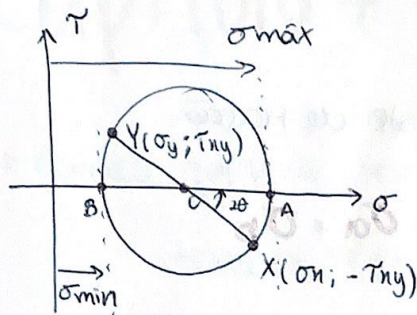 τ
σmáx
Y(σy; τxy)
B
C
2θ
A
σ
X(σx; -τxy)
σmin